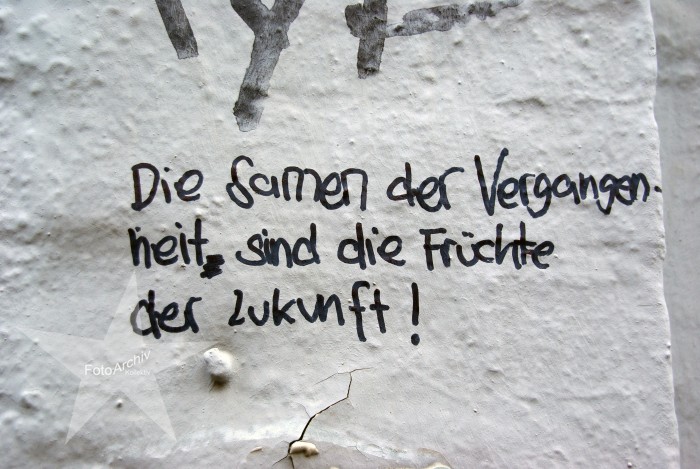 Die Samen der Vergangen-
heit, sind die Früchte
der Zukunft!
FotoArchiv